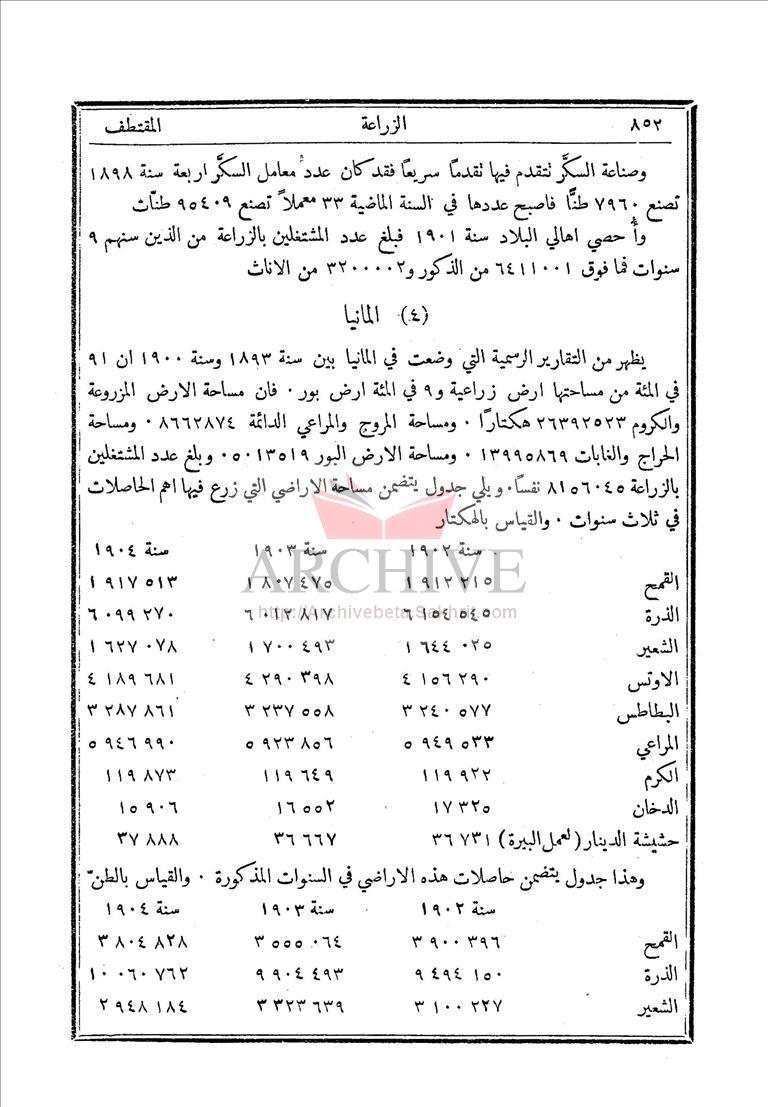 ٨٥٢ الزراعة المقتطف
وصناعة السكَّر نتقدم فيها نقدماً سريعاً فقد كان عدد معامل السكَّر اربعة سنة ١٨٩٨
تصنع ٧٩٦٠ طنًّا فاصبح عددها في السنة الماضية ٣٣ معملاً تصنع ٩٥٤٠٩ طنّات
وأُحصي اهالي البلاد سنة ١٩٠١ فبلغ عدد المشتغلين بالزراعة من الذين سنهم ٩
سنوات فما فوق ٦٤١١٠٠١ من الذكور و٣٢٠٠٠٠٢ من الاناث
(٤) المانيا
يظهر من التقارير الرسمية التي وضعت في المانيا بين سنة ١٨٩٣ وسنة ١٩٠٠ ان ٩١
في المئة من مساحتها ارض زراعية و٩ في المئة ارض بور ٠ فان مساحة الارض المزروعة
والكروم ٢٦٣٩٢٥٢٣ هكتارًا ٠ ومساحة المروج والمراعي الدائمة ٨٦٦٢٨٧٤ ٠ ومساحة
الحراج والغابات ١٣٩٩٥٨٦٩ ٠ ومساحة الارض البور ٥٠١٣٥١٩ ٠ وبلغ عدد المشتغلين
بالزراعة ٨١٥٦٠٤٥ نفساً ٠ ويلي جدول يتضمن مساحة الاراضي التي زرع فيها اهم الحاصلات
في ثلاث سنوات ٠ والقياس بالهكتار
سنة ١٩٠٢ سنة ١٩٠٣ سنة ١٩٠٤
القمح ١ ٩١٢ ٢١٥ ١ ٨٠٧ ٤٧٥ ١ ٩١٧ ٥١٣
الذرة ٦ ١٥٤ ٥٤٥ ٦ ٠١٢ ٨١٧ ٦ ٠٩٩ ٢٧٠
الشعير ١ ٦٤٤ ٠٢٥ ١ ٧٠٠ ٤٩٣ ١ ٦٢٧ ٠٧٨
الاوتس ٤ ١٥٦ ٢٩٠ ٤ ٢٩٠ ٣٩٨ ٤ ١٨٩ ٦٨١
البطاطس ٣ ٢٤٠ ٥٧٧ ٣ ٢٣٧ ٥٥٨ ٣ ٢٨٧ ٨٦١
المراعي ٥ ٩٤٩ ٥٣٣ ٥ ٩٢٣ ٨٥٦ ٥ ٩٤٦ ٩٩٠
الكرم ١١٩ ٩٢٢ ١١٩ ٦٤٩ ١١٩ ٨٧٣
الدخان ١٧ ٣٢٥ ١٦ ٥٥٢ ١٥ ٩٠٦
حشيشة الدينار (لعمل البيرة) ٣٦ ٧٣١ ٣٦ ٦٦٧ ٣٧ ٨٨٨
وهذا جدول يتضمن حاصلات هذه الاراضي في السنوات المذكورة ٠ والقياس بالطنّ
سنة ١٩٠٢ سنة ١٩٠٣ سنة ١٩٠٤
القمح ٣ ٩٠٠ ٣٩٦ ٣ ٥٥٥ ٠٦٤ ٣ ٨٠٤ ٨٢٨
الذرة ٩ ٤٩٤ ١٥٠ ٩ ٩٠٤ ٤٩٣ ١٠ ٠٦٠ ٧٦٢
الشعير ٣ ١٠٠ ٢٢٧ ٣ ٣٢٣ ٦٣٩ ٢ ٩٤٨ ١٨٤
ARCHIVE
http://Archivebeta.Sakhrit.com